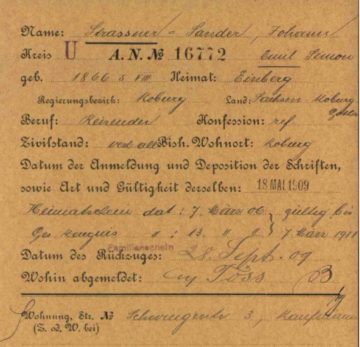 Name: Strassner-Sander, Johann
Kreis U A.N.№ 16772 Emil Simon
geb. 1866 5. VIII. Heimat: Einberg
Regierungsbezirk: Koburg Land: Sachsen Koburg
Beruf: Reisender Konfession: ref
Zivilstand: Bish. Wohnort: Koburg
Datum der Anmeldung und Deposition der Schriften,
sowie Art und Gültigkeit derselben: 18 MAI 1909
Heimatschein dat: 7. 06 gültig bis
13. 7 1911
Familienschein
Datum des Rückzuges: 28. Sept. 09
Wohin abgemeldet: Töss
Wohnung, Str. № 3,
(Z. d. W. bei)